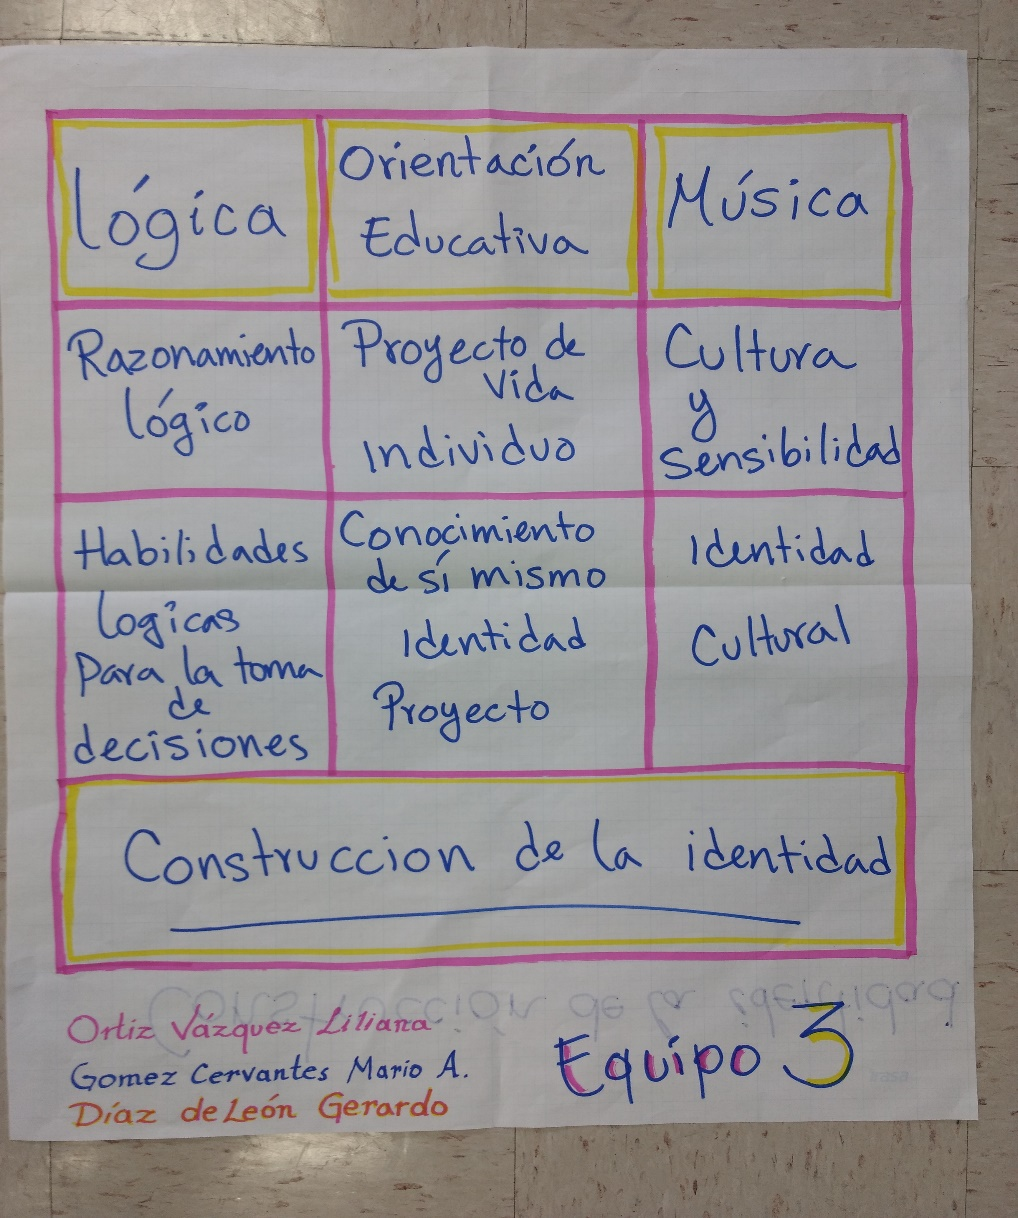 Lógica
Orientación
Educativa
Música
Razonamiento
lógico
Proyecto de
Vida
Individuo
Cultura
y
sensibilidad
Habilidades
Logicas
Para la toma
de
decisiones
Conocimiento
de sí mismo
Identidad
Proyecto
Identidad
Cultural
Construccion de la identidad
Construcción de la identidad
Ortiz Vázquez Liliana
Gomez Cervantes Mario A.
Díaz de León Gerardo
Equipo 3